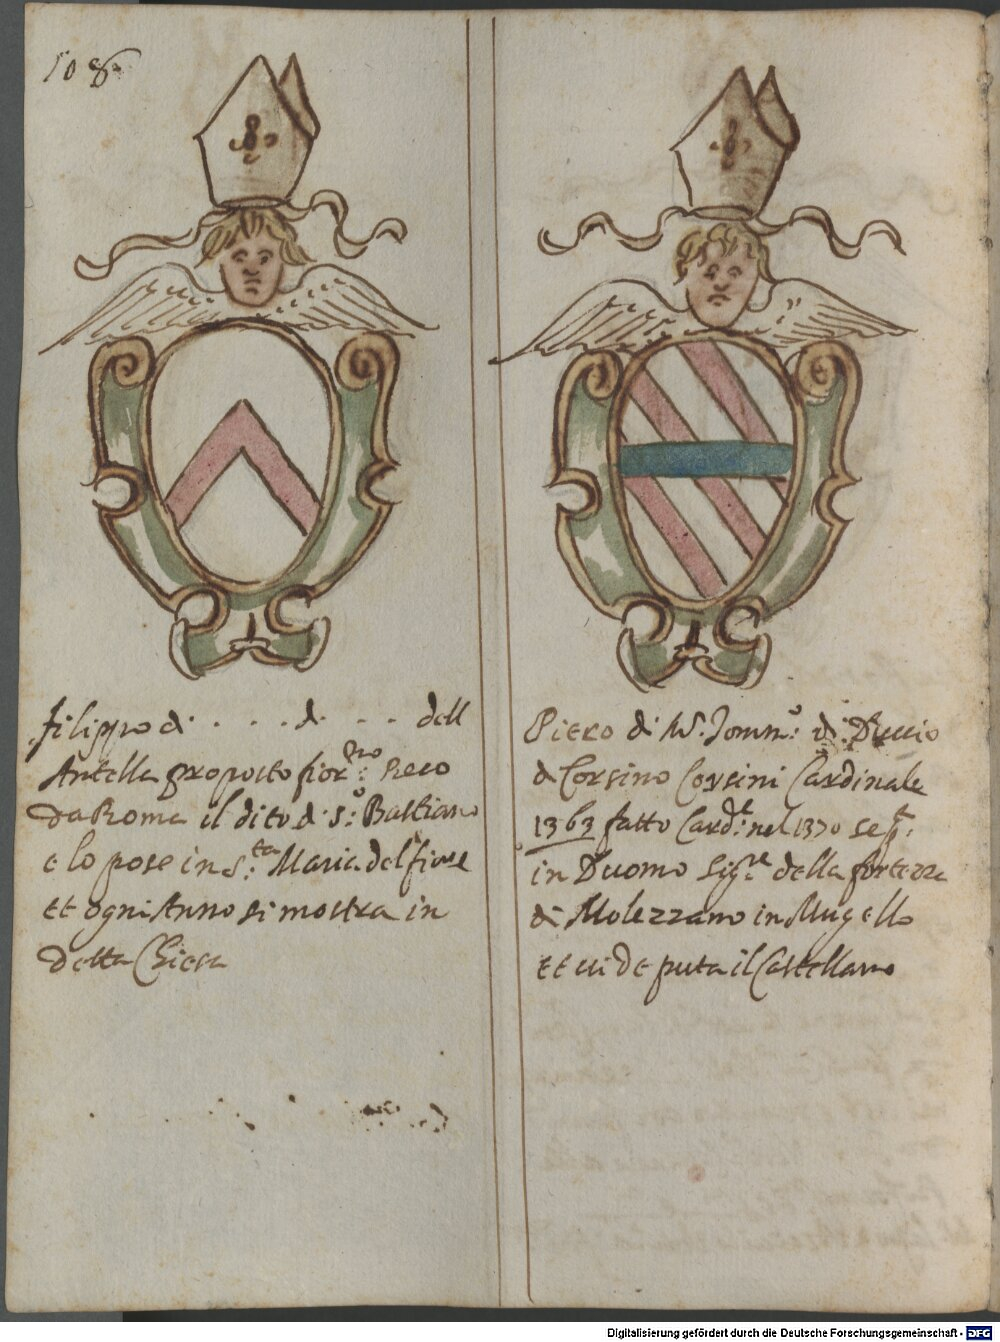 108
filippo di . . . . di . . . dell
Antella proposto fior:no Reco
Da Roma il dito di S:o Bastiano
e lo pose in S:ta Maria del fiore
et ogni Anno si mostra in
detta Chiesa
Piero di M. Tomm:o di Duccio
di Corsino Corsini Cardinale
1363 fatto Card:le nel 1370 sep:t
in Duomo Sig:re della fortezza
di Molezzano in Mugello
et ui deputa il Castellano
Digitalisierung gefördert durch die Deutsche Forschungsgemeinschaft - DFG